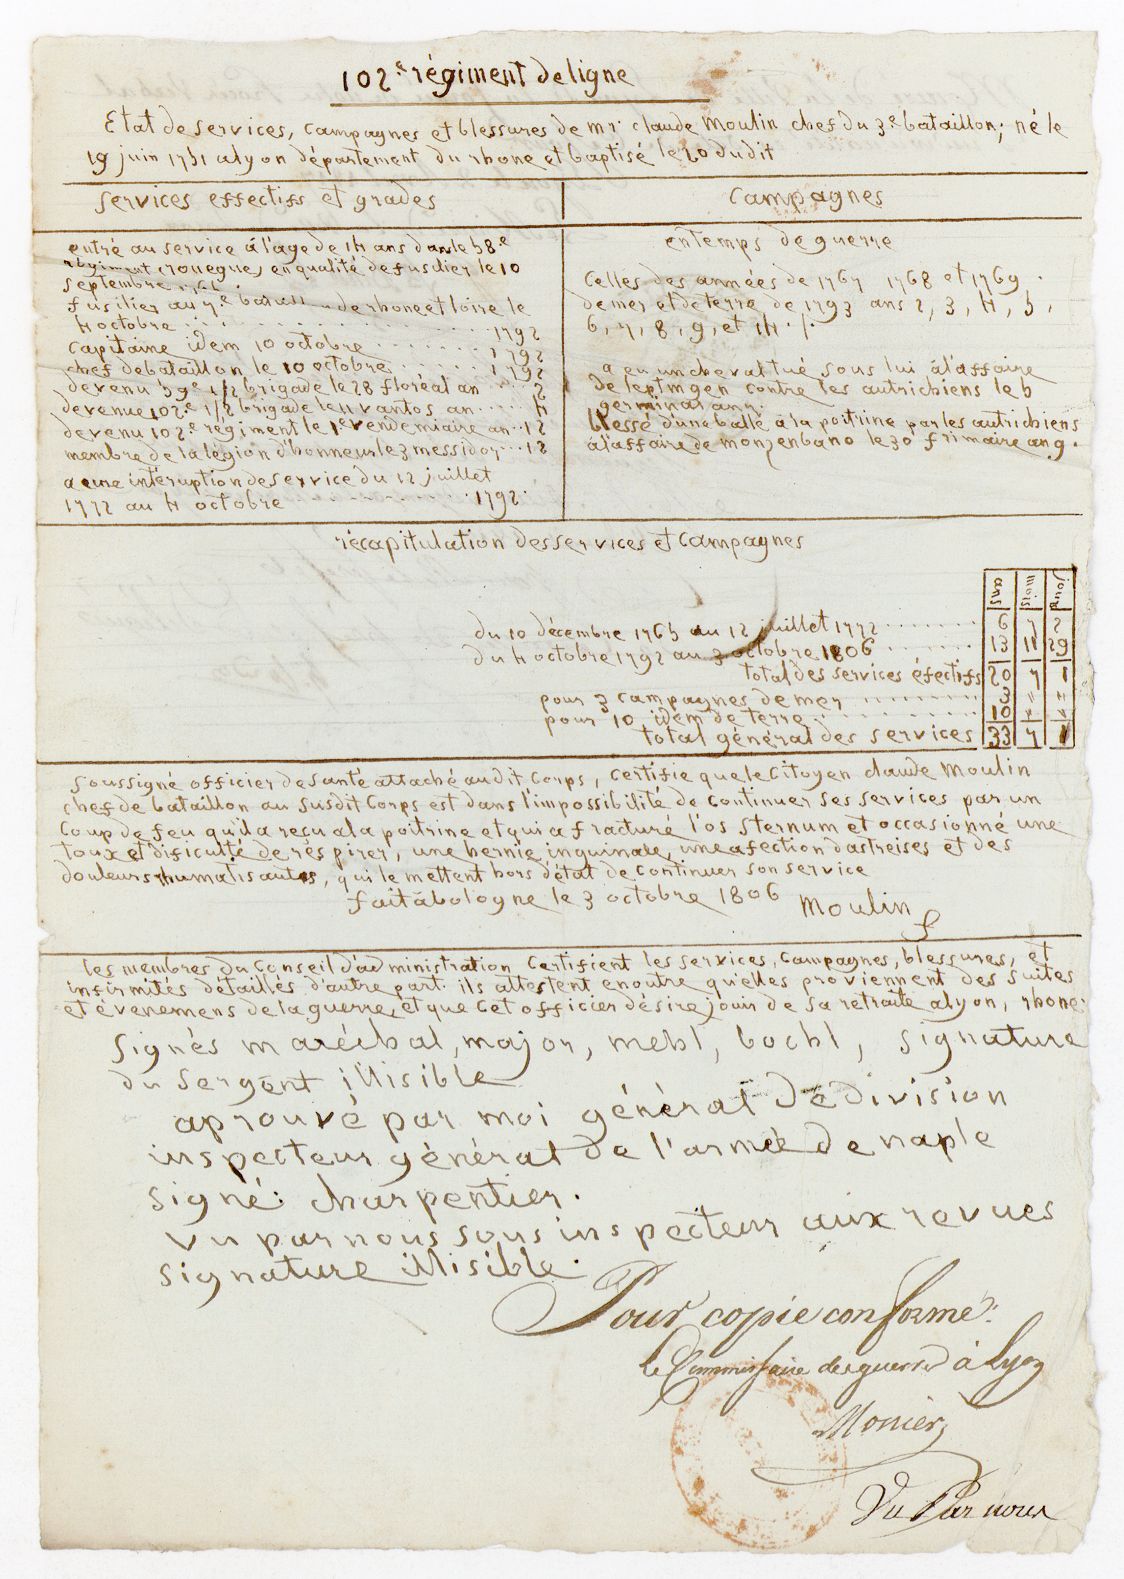 102.e régiment de ligne
Etat de services, campagnes et blessures de mr. claude Moulin chef du 3.e bataillon; né le
19 juin 1751 a lyon département du rhone et baptisé le 20 dudit
services effectifs et grades
campagnes
entré au service à l'age de 14 ans dans le 58.e
régiment (rouegue) en qualité de fusilier le 10
septembre 1765
fusilier au 7.e bataillon de rhone et loire le
4 octobre 1792
capitaine idem 10 octobre 1792
chef debataillon le 10 octobre 1792
devenu 59.e 1/2 brigade le 28 floréal an 2
devenue 102.e 1/2 brigade le 11 vantos an 4
devenu 102.e régiment le 1er vendemiaire an 12
membre de la légion d'honneur le 3 messidor 12
a eu une intéruption de service du 12 juillet
1772 au 4 octobre 1792.
en temps de guerre
celles des années de 1767 1768 et 1769.
de mer et de terre de 1793 ans 2, 3, 4, 5,
6, 7, 8, 9, et 14. /.
a eu un cheval tué sous lui à l'affaire
de leptingen contre les autrichiens le 6
germinal an 7.
blessé d'une balle à la poitrine par les autrichiens
à l'affaire de monzenbano le 30 frimaire an 9.
récapitulation des services et campagnes
ans mois jours
du 10 décembre 1765 au 12 juillet 1772 6 7 2
du 4 octobre 1792 au 3 octobre 1806 13 11 29
total des services éfectifs 20 7 1
pour 3 campagnes de mer 3 " "
pour 10 idem de terre 10 " "
total général des services 33 7 1
soussigné officier de santé attaché audit corps, certifie que le citoyen claude Moulin
chef de bataillon au susdit corps est dans l'impossibilité de continuer ses services par un
coup de feu qu'il a reçu a la poitrine et qui a fracturé l'os sternum et occasionné une
toux et dificulté de réspirer, une hernie inguinale, une afection d'astreises et des
douleurs rhumatisantes, qui le mettent hors d'état de continuer son service
fait à bologne le 3 octobre 1806 Moulin
les membres du conseil d'administration certifient les services, campagnes, blessures, et
infirmités détaillés d'autre part. ils attestent en outre qu'elles proviennent des suites
et évenemens de la guerre, et que cet officier désire jouir de sa retraite a lyon, rhone.
signés maréchal, major, mehl, bochl, signature
du sergent illisible
aprouvé par moi général de division
inspecteur général de l'armée de naple
signé: charpentier.
vu par nous sous inspecteur aux revues
signature illisible.
Pour copie conforme:
le Commissaire des guerres à Lyon
Monier
Vu Par nous